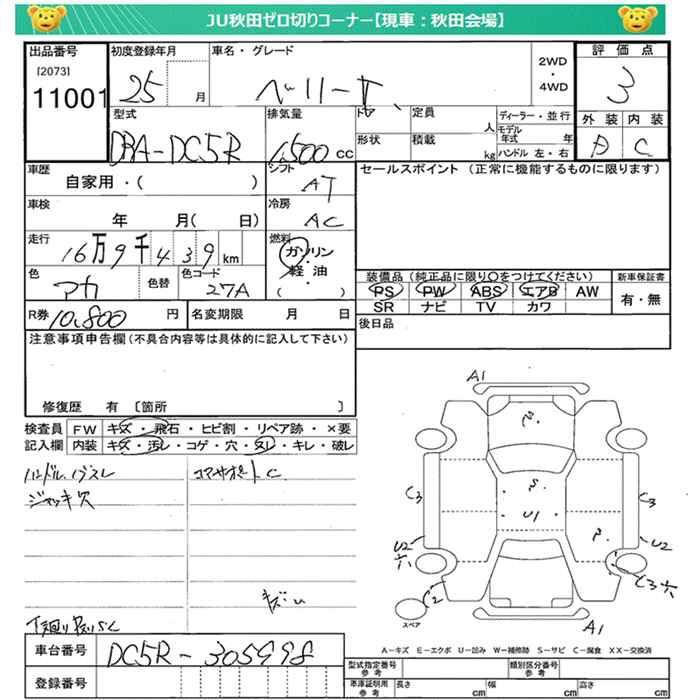 JU秋田ゼロ切りコーナー【現車：秋田会場】
出品番号 初度登録年月 車名・グレード 2WD・4WD 評価点
[2073]
11001 25 月 ベリーサ 3
型式 排気量 ドア 定員 人 ディーラー・並行 外装 内装
モデル年式 年
DBA-DC5R 1,500 CC 形状 積載 kg ハンドル 左・右 D C
車歴 シフト セールスポイント（正常に機能するものに限ります）
自家用・( ) AT
車検 冷房
年 月( 日) AC
走行 燃料
16万9千439km ガソリン
軽・油
( )
色 色替 色コード 装備品（純正品に限り○をつけてください） 新車保証書
アカ 27A PS PW ABS エアB AW 有・無
SR ナビ TV カワ
R券 10,800 円 名変期限 月 日 後日品
注意事項申告欄（不具合内容等は具体的に記入して下さい）
修復歴 有 〔箇所 〕
検査員 FW キズ・飛石・ヒビ割・リペア跡・×要
記入欄 内装 キズ・汚レ・コゲ・穴・ヌレ・キレ・破レ
ジャッキ欠
コアサポートC
A1
C3
C3
S
U1
U2
U2
C2
C3
A1
スペア
A-キズ E-エクボ U-凹み W-補修跡 S-サビ C-腐食 XX-交換済
車台番号 DC5R-305998
登録番号
型式指定番号 参考 類別区分番号 参考
車庫証明用 参考 長さ cm 幅 cm 高さ cm